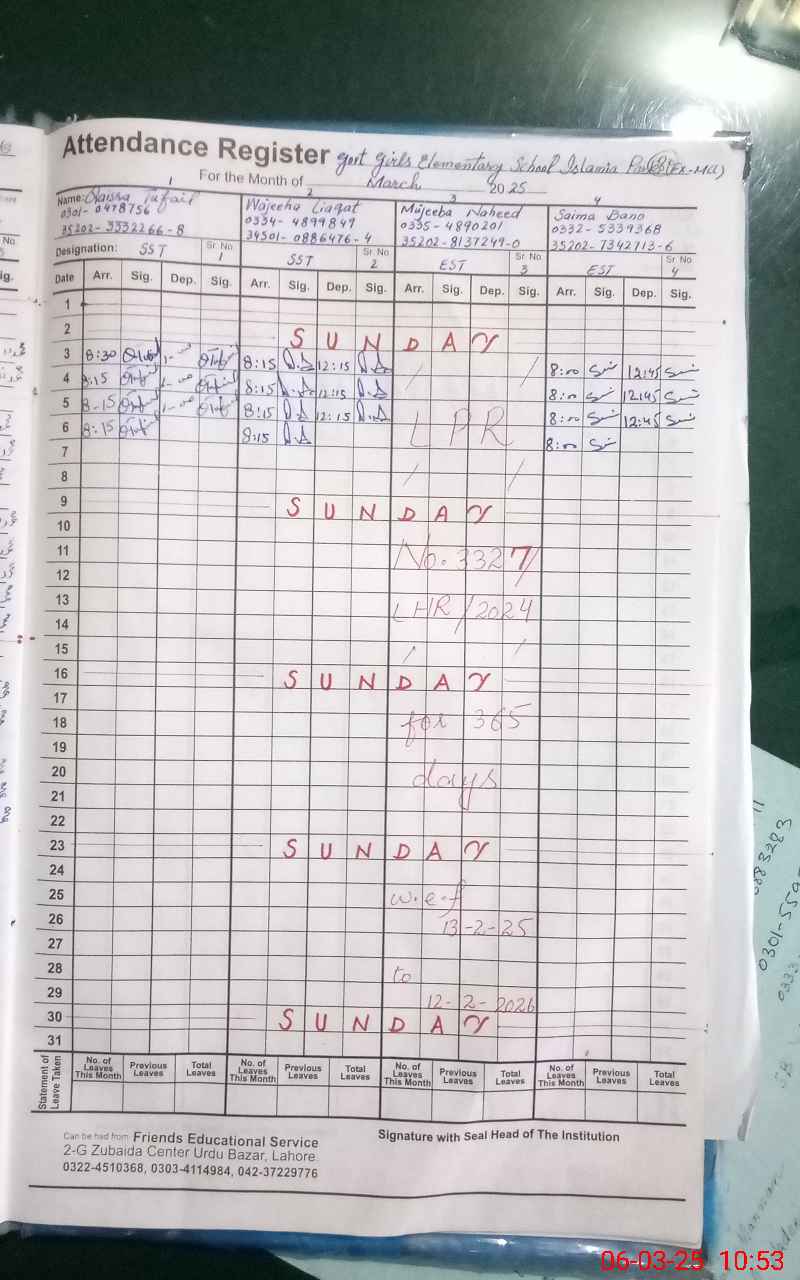 Attendance Register Govt Girls Elementary School Islamia Park (Ex-MCL)
For the Month of March 2025
1 2 3 4
Name: Tufail Wajeeha Liaqat Mujeeba Naheed Saima Bano
0301-0478756 0334-4899849 0335-4890201 0332-5339368
35202-3532266-8 34501-0886476-4 35202-8137249-0 35202-7342713-6
Designation: SST Sr. No. 1 SST Sr. No. 2 EST Sr. No. 3 EST Sr. No. 4
Date Arr. Sig. Dep. Sig. Arr. Sig. Dep. Sig. Arr. Sig. Dep. Sig. Arr. Sig. Dep. Sig.
1
2 SUNDAY
3 8:30 8:15 12:15 8:00 12:45
4 8:15 8:15 12:15 8:00 12:45
5 8:15 8:15 12:15 LPR 8:00 12:45
6 8:15 8:15 8:00
7
8
9 SUNDAY
10
11 No. 3327/
12
13 LHR/2024
14
15
16 SUNDAY
17
18 for 365
19
20 days
21
22
23 SUNDAY
24
25 w.e.f
26 13-2-25
27
28 to
29 12-2-2026
30 SUNDAY
31
Statement of Leave Taken
No. of Leaves This Month Previous Leaves Total Leaves No. of Leaves This Month Previous Leaves Total Leaves No. of Leaves This Month Previous Leaves Total Leaves No. of Leaves This Month Previous Leaves Total Leaves
Can be had from Friends Educational Service
2-G Zubaida Center Urdu Bazar, Lahore.
0322-4510368, 0303-4114984, 042-37229776
Signature with Seal Head of The Institution
06-03-25 10:53